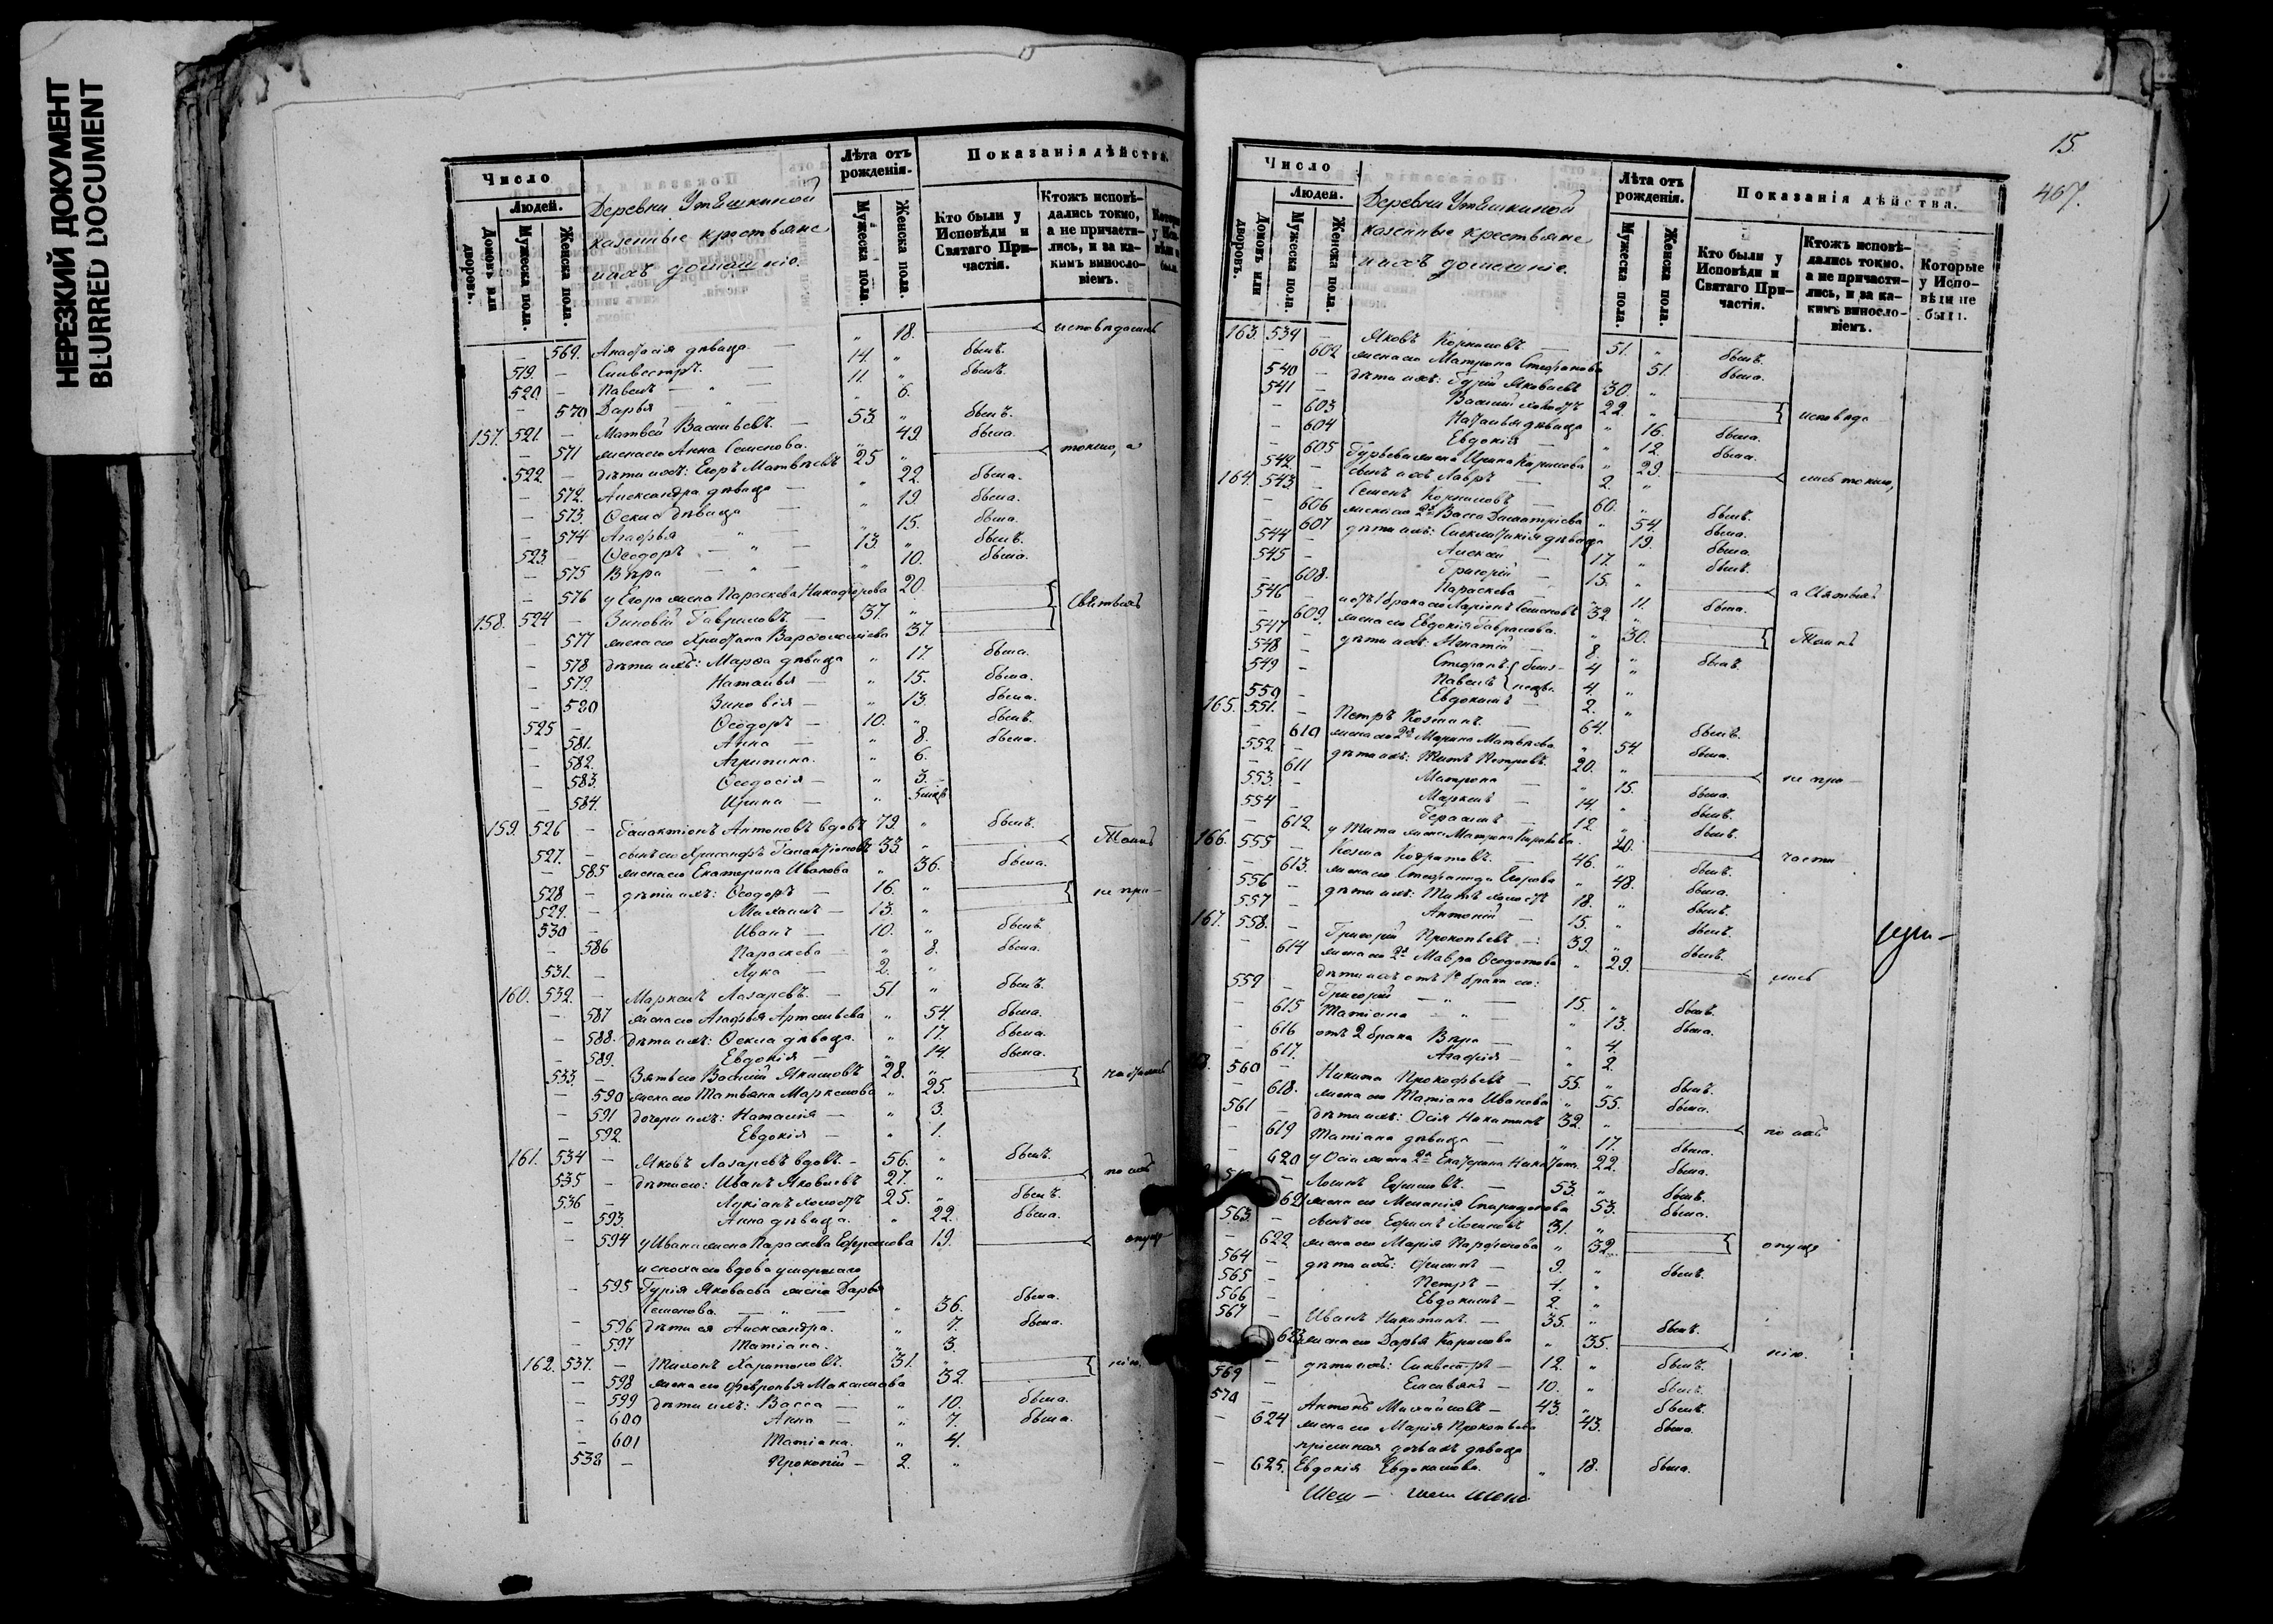 НЕРЕЗКИЙ ДОКУМЕНТ
BLURRED DOCUMENT
Число
Людей.
Домовъ или дворовъ.
Мужеска пола.
Женска пола.
Деревни Утѣшкиной
казенные крестьяне
и ихъ домашніе.
Лѣта отъ рожденія.
Мужеска пола.
Женска пола.
Показанія дѣйства.
Кто были у Исповѣди и Святаго Причастія.
Ктожъ исповѣдались токмо, а не причастились, и за какимъ винословіемъ.
569. Анафосія дѣвица — „ 18. исповѣдались
519. — Силвестръ — 14. „ былъ.
520 — Павелъ — „ — 11. „ былъ.
— 570 Дарья — „ — „ 6.
157. 521. — Матвей Васильевъ. — 53. „ былъ.
— 571 жена его Анна Семенова. „ 49. была.
522 — дѣти ихъ: Егоръ Матвѣевъ 25 „ токмо, а
— 572. Александра дѣвица — „ 22. была.
— 573. Оекла дѣвица — „ 19. была.
— 574 Агафья „ — „ 15. была.
523. — Ѳеодоръ — „ — 13. „ былъ.
— 575 Вѣра — „ — „ 10. была.
— 576 у Егора жена Параскева Никифорова 20.
158. 524 — Зиновій Гавриловъ. — 37. „ Святыхъ
— 577 жена его Христина Варѳоломеева 37
— 578 дѣти ихъ: Марѳа дѣвица „ 17. была.
— 579. Наталья — „ 15. была.
— 580 Зиновія — „ 13. была.
525 — Ѳеодоръ — 10. „ былъ.
— 581. Анна — „ 8. была.
— 582. Агрипина. „ 6.
— 583. Ѳеодосія — „ 3.
— 584. Ирина — „
159. 526 — Галактіонъ Антоновъ вдовъ 79. „ былъ.
527. — сынъ его Хрисанфъ Галактіоновъ 33 „ Таинъ
— 585 жена его Екатерина Иванова „ 36. была.
528 — дѣти ихъ: Ѳеодоръ — 16. „ не при-
529. — Михаилъ — 13. „
530 — Иванъ — 10. „ былъ.
— 586 Параскева — „ 8. была.
531. — Лука — 2. „
160. 532. — Маркелъ Лазаревъ. — 51 „ былъ.
— 587 жена его Агафья Артемьева „ 54. была.
— 588. дѣти ихъ: Ѳекла дѣвица. „ 17. была.
— 589. Евдокія — „ 14. была.
533. — Зять его Василій Якимовъ 28. „
— 590 жена его Татьяна Маркелова „ 25.
— 591 дочери ихъ: Наталія — „ 3.
— 592. Евдокія — „ 1.
161. 534 — Яковъ Лазаревъ вдовъ. — 56. „ былъ.
535 — дѣти его: Иванъ Яковлевъ 27. „
536 — Лукіанъ холостъ 25. „ былъ.
— 593. Анна дѣвица. „ 22. была.
— 594 у Ивана жена Параскева Ефремова 19. опуще-
— 595 Гурія Яковлева жена Дарья
Семенова. — „ — „ 36. была.
— 596 дѣти ея Александра. „ 7. была.
— 597 Татіана. „ 3.
162. 537. — Тихонъ Харитоновъ. 31. „ нію.
— 598 жена его Февронья Максимова 32.
— 599 дѣти ихъ: Васса — „ 10. была.
— 600 Анна — „ 7. была.
— 601 Татіана. „ 4.
538 — Прокопій — 2. „
15.
407.
Число
Людей.
Домовъ или дворовъ.
Мужеска пола.
Женска пола.
Деревни Утѣшкиной
казенные крестьяне
и ихъ домашніе.
Лѣта отъ рожденія.
Мужеска пола.
Женска пола.
Показанія дѣйства.
Кто были у Исповѣди и Святаго Причастія.
Ктожъ исповѣдались токмо, а не причастились, и за какимъ винословіемъ.
Которые у Исповѣди не были.
163. 539 — Яковъ Корниловъ — 51. „ былъ.
602 жена его Матрона Стефанова 51. была.
540 — дѣти ихъ: Гурій Яковлевъ 30. „
541 — Василій холостъ 22. „ исповѣда
— 603 Наталья дѣвица „ 16. была.
— 604 Евдокія — „ 12. была.
— 605 Гурьева жена Ирина Карпова „ 29.
542. — сынъ ихъ Лавръ — 2. „ лись токмо,
164. 543. — Семенъ Корниловъ — 60. „ былъ.
— 606 жена его 2я Васса Димитріева „ 54. была.
— 607 дѣти ихъ: дѣвица 19. была.
544 — Алексѣй — 17. „ былъ.
545 — Григорій — 15. „ а Святыхъ
— 608. Параскева — „ 11. была.
546 — отъ 1 брака его Ларіонъ Семеновъ 32. „
— 609. жена его Евдокія Гаврилова. „ 30. Таинъ
547 — дѣти ихъ: Игнатій — 8. „ былъ.
548 — Стефанъ близ- 4 „
549 — Павелъ нецы. 4. „
550 — Евдокимъ — 2. „
165. 551. — Петръ Козминъ. — 64. былъ.
— 610 жена его 2я Марина Матвѣева „ 54. была.
552. — дѣти ихъ: Титъ Петровъ. 20. „ не при-
— 611 Матрона — „ 15. была.
553. — Маркелъ — 14. „ былъ.
554 — Герасимъ — 12. „ былъ.
— 612. у Тита жена Матрона 20. части
166. 555 — Козма Кодратовъ. — 46. „ былъ.
— 613. жена его Стефанида Егорова „ 48. была.
556 — дѣти ихъ: Титъ холостъ 18. „ былъ.
557 — Антоній — 15. „ былъ.
167. 558. — Григорій Прокопьевъ — 39. „ былъ.
— 614 жена его 2я Мавра Ѳедотова „ 29. лись
дѣти ихъ отъ 1го брака его:
559 — Григорій — „ — 15. „ былъ.
— 615 Татіана — „ „ 13. была.
— 616 отъ 2 брака Вѣра — „ 4.
— 617. Агафія — „ 2.
560 — Никита Прокофьевъ — 55. „ былъ.
— 618. жена его Татіана Иванова „ 55. была.
561 — дѣти ихъ: Осія Никитинъ 32. „ по ихъ
— 619 Татіана дѣвица — „ 17. была.
— 620 у Осіи жена 2я Екатерина 22. была.
— Логинъ Ефимовъ. — 53. „ былъ.
621 жена его Меланія Спиридонова 53. была.
563. — сынъ его Ефимъ Логиновъ 31. „
— 622 жена его Марія Парфенова „ 32. опуще
564 — дѣти ихъ: Филипъ — 9. „ былъ.
565 — Петръ — 4. „
566 — Евдокимъ — 2. „
567 — Иванъ Никитинъ — 35. „ былъ.
623 жена его Дарья Карпова „ 35. нію.
— дѣти ихъ: Силвестръ — 12. „ былъ.
569 — Емельянъ — 10. „ былъ.
570 — Антонъ Михайловъ — 43. „ былъ.
— 624 жена его Марія Прокопьева 43. была.
пріемная дочь ихъ дѣвица
— 625. Евдокія Евдокимова. „ 18. была.